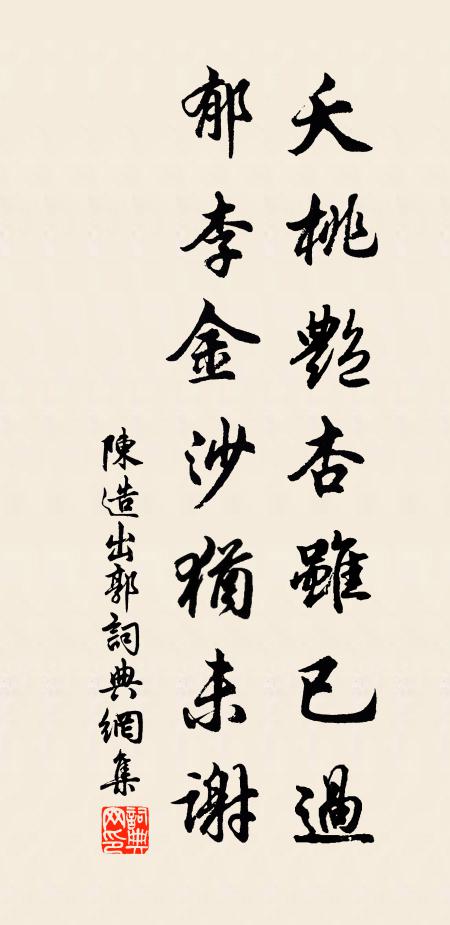 夭桃艷杏雖已過
郁李金沙猶未謝
陳造出郭詞典網集
詞典
网印